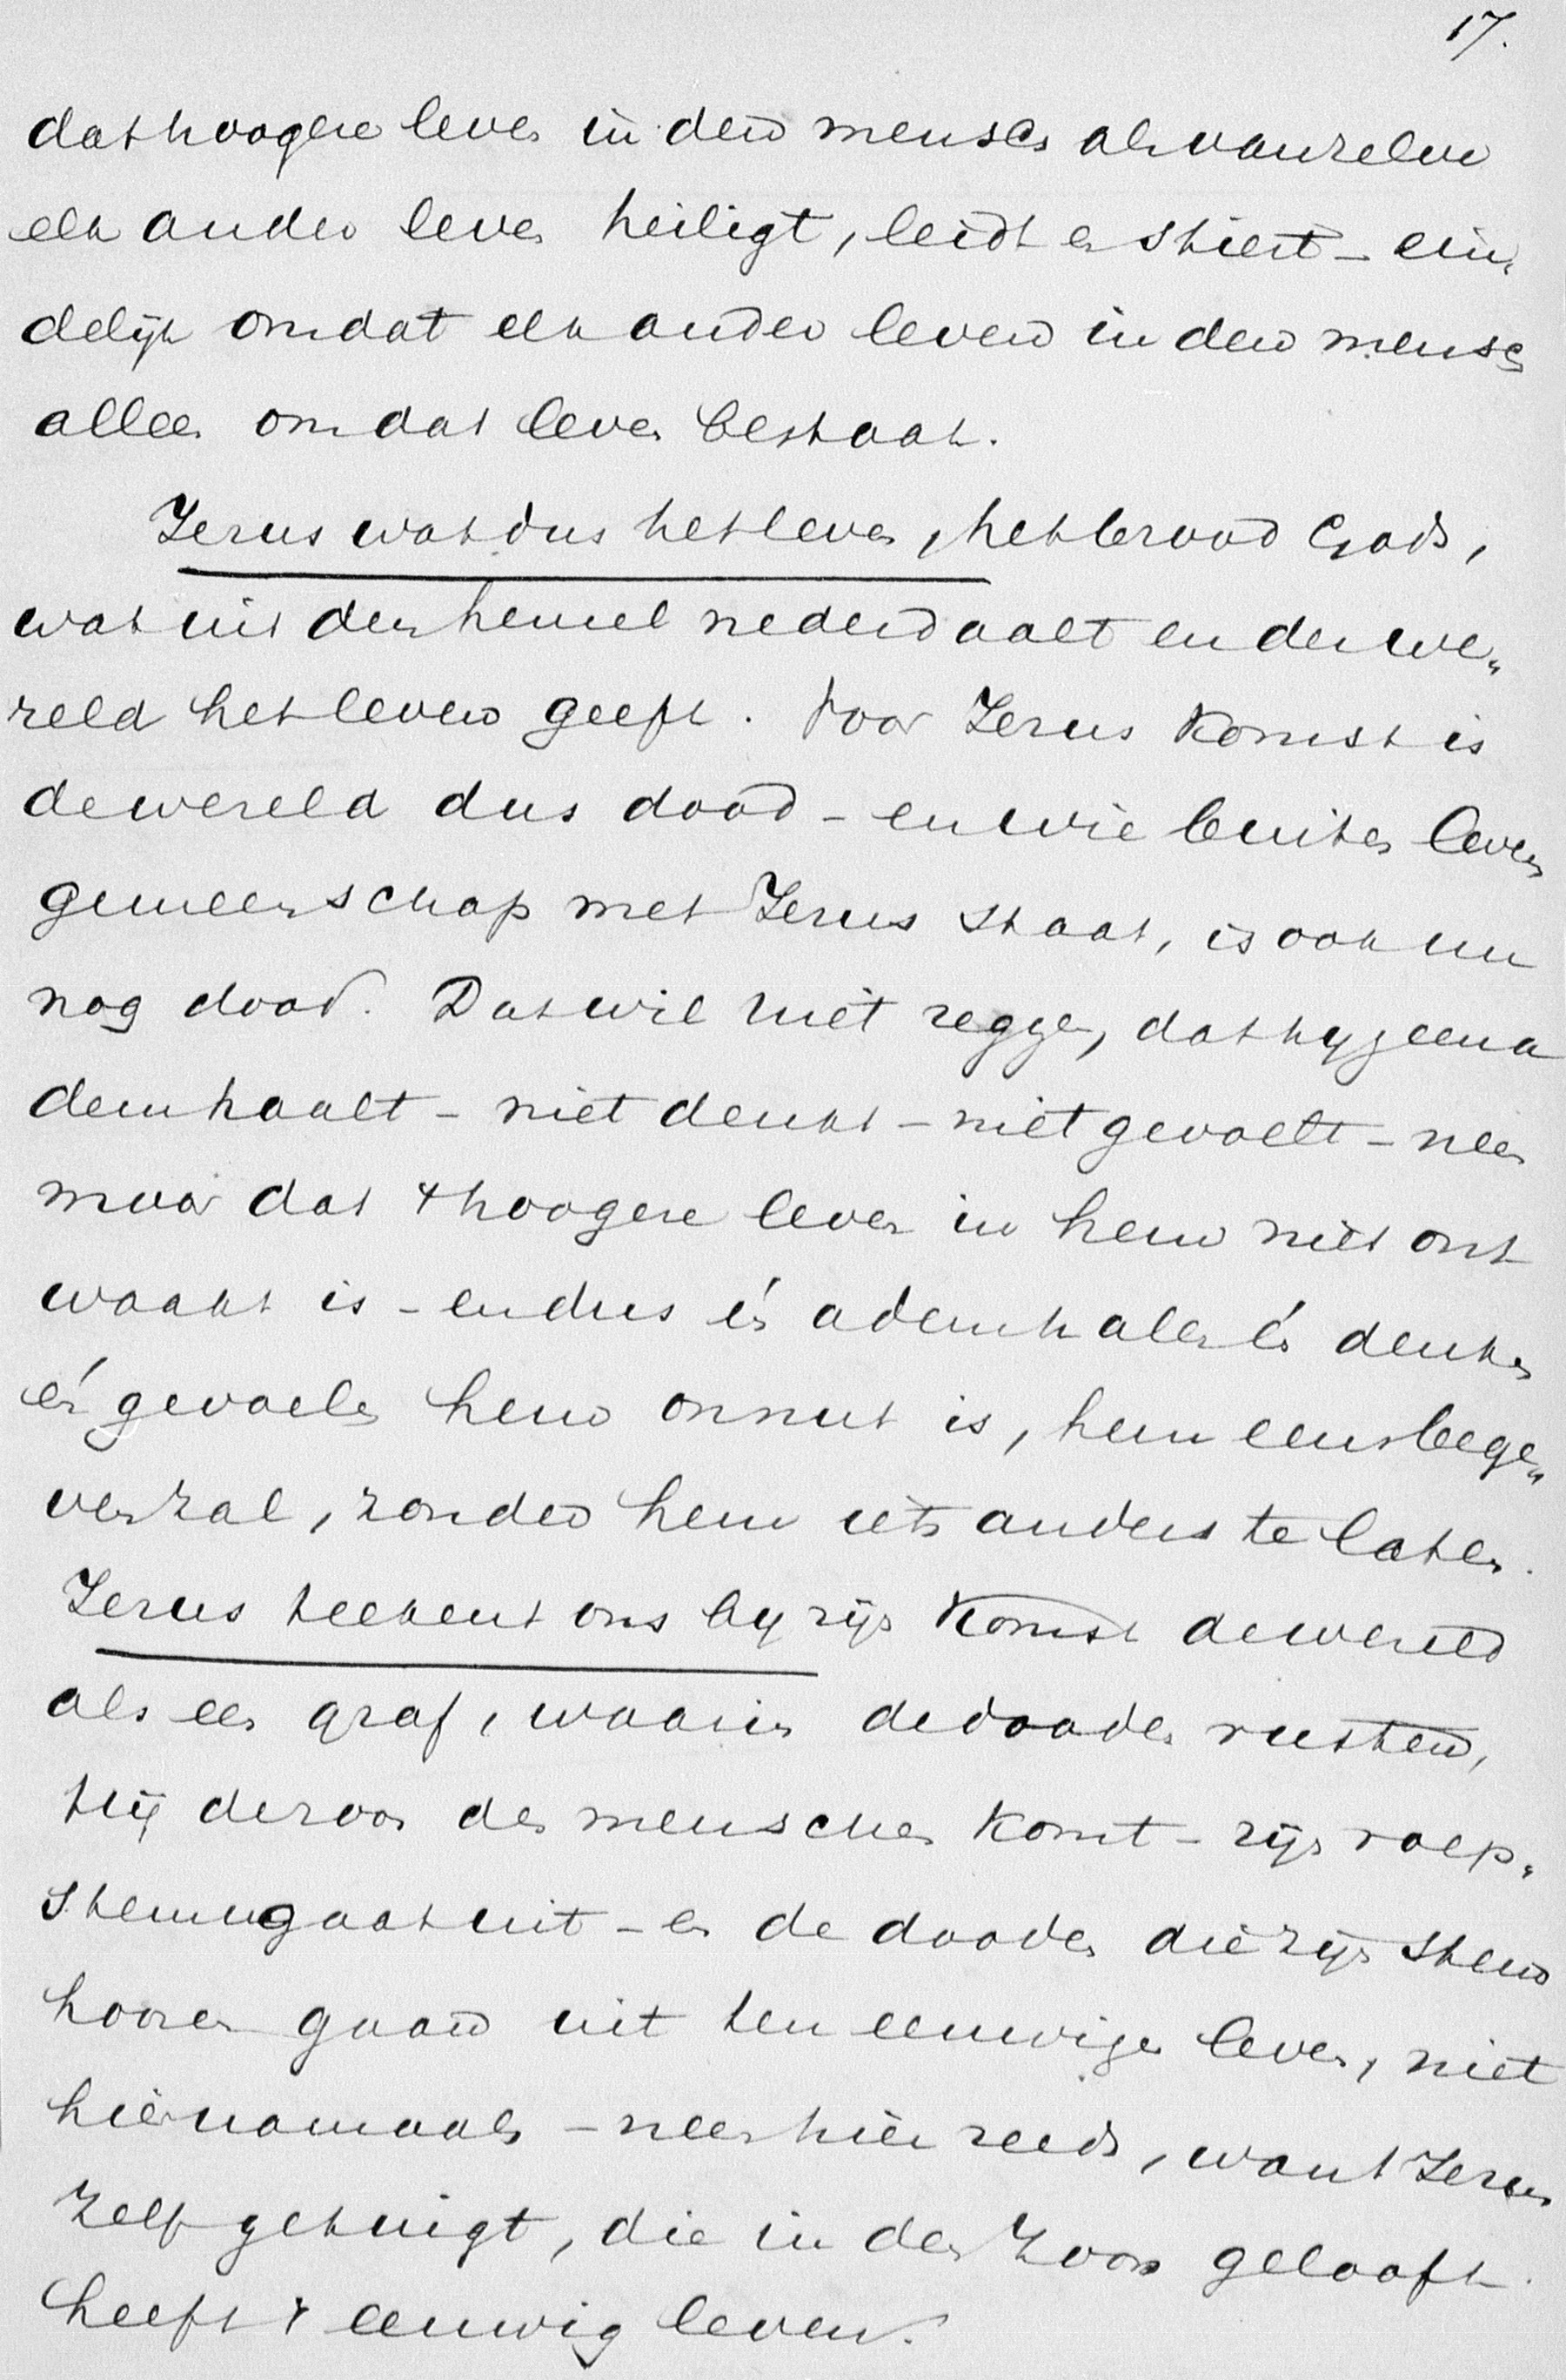 17.
dat hoogere leven in den mensch als vanzelve
elk ander leven heiligt, leidt en stiert – ein„
delijk omdat elk ander leven in den mensch
alleen om dat leven bestaat.
Jezus wat dus het leven, het brood Gods,
wat uit den hemel nederdaalt en der we„
reld het leven geeft. Voor Jezus komst is
de wereld dus dood – en wie buiten levens
gemeenschap met Jezus staat, is ook nu
nog dood. Dat wil niet zeggen, dat hij geen a
demhaalt – niet denkt – niet gevoelt – neen
maar dat 't hoogere leven in hem niet ont
waakt is – en dus én ademhalen én denken
én gevoelen hem onnut is, hem eens bege„
ven zal, zonder hem iets anders te laten.
Jezus teekent ons bij zijn komst de wereld
als een graf, waarin de dooden rusten,
Hij de zoon des menschen komt – zijn roep„
stem gaat uit – en de dooden die zijn stem
hooren gaan uit ten eeuwigen leven, niet
hiernamaals – neen hier reeds, want Jezus
zelf getuigt, die in den Zoon gelooft
heeft 't eeuwig leven.